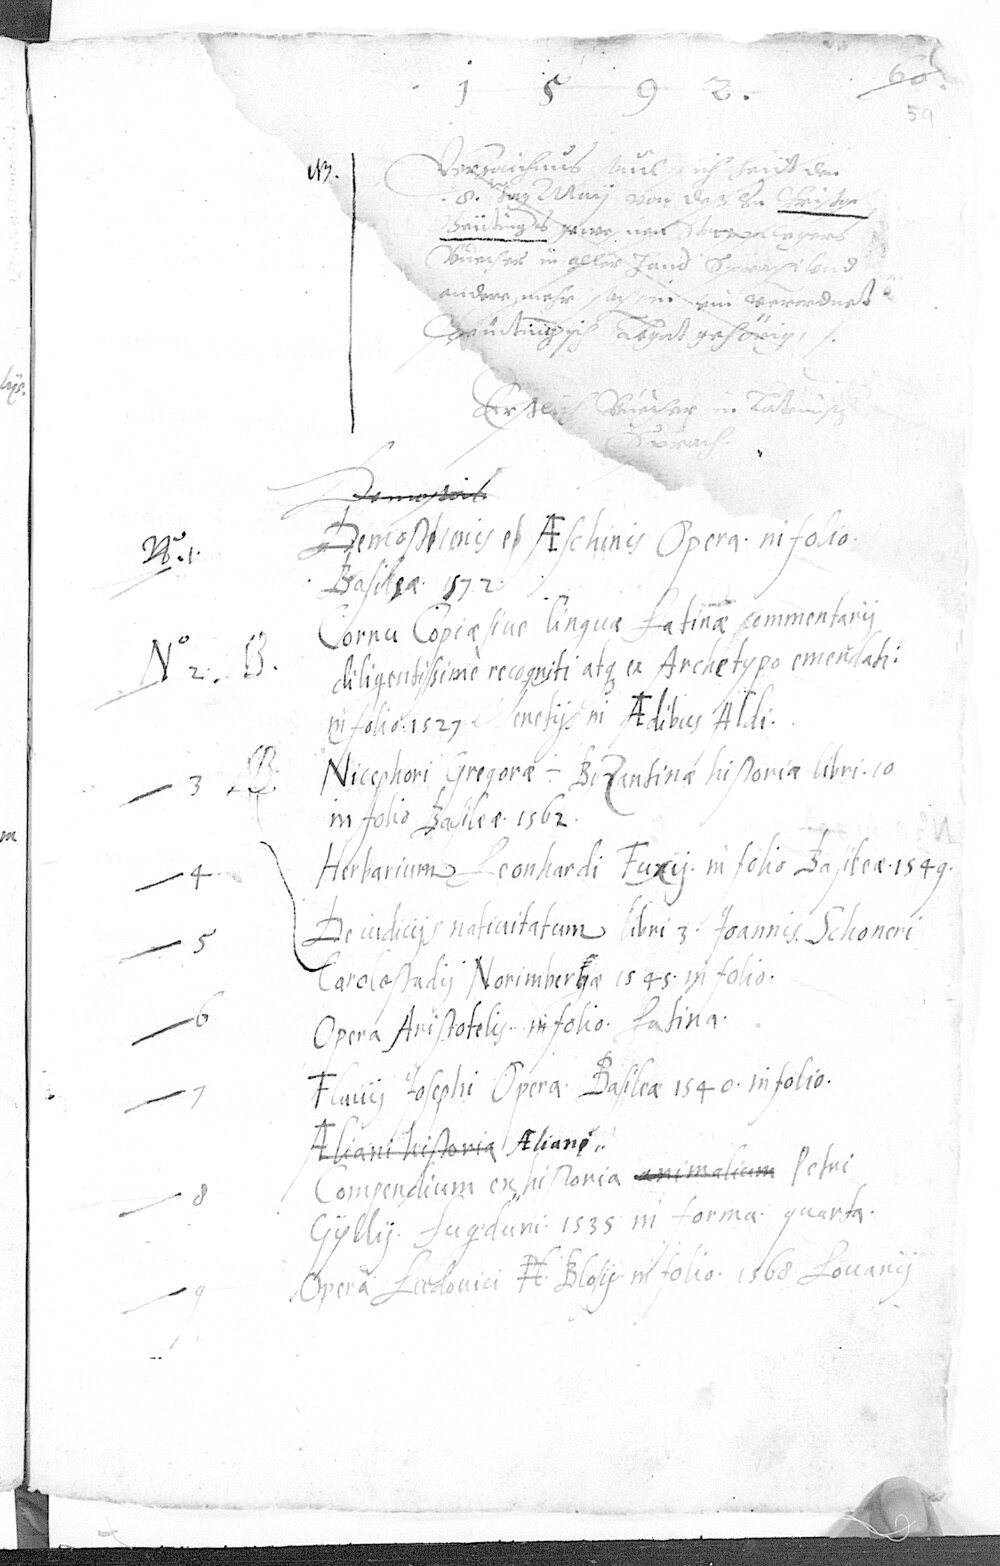 1592.
60.
59
NB.
Verzaichnus
8. Tag Maij von des Christof
Peutingers
Büecher in aller Hand Sprach und
andere mehr verordnet
gehörig
Erstlich Büecher in Lateinisch
Sprach.
No. 1. Demosthenis et Æschinis Opera in folio.
Basileæ 1572.
No 2. B. Cornu Copiæ siue linguæ Latinæ commentarij
diligentissime recogniti atq ex Archetypo emendati:
in folio. 1527 Venetijs in Ædibus Aldi.
3 B. Nicephori Gregoræ Bizantinæ historiæ libri. 10
in folio Basileæ. 1562.
4 Herbarium Leonhardi Fuxij. in folio Basileæ. 1549.
5 De iudicijs natiuitatum libri 3. Joannis Schoneri
Carolostadij Norimbergæ 1545. in folio.
6 Opera Aristotelis. in folio. Latina.
7 Flauij Josephi Opera. Basileæ 1540. in folio.
Æliani historia Æliani
8 Compendium ex historia animalium Petri
Gÿllij. Lugduni. 1535 in forma quarta.
9 Opera Ludouici Blosij in folio. 1568 Louanij